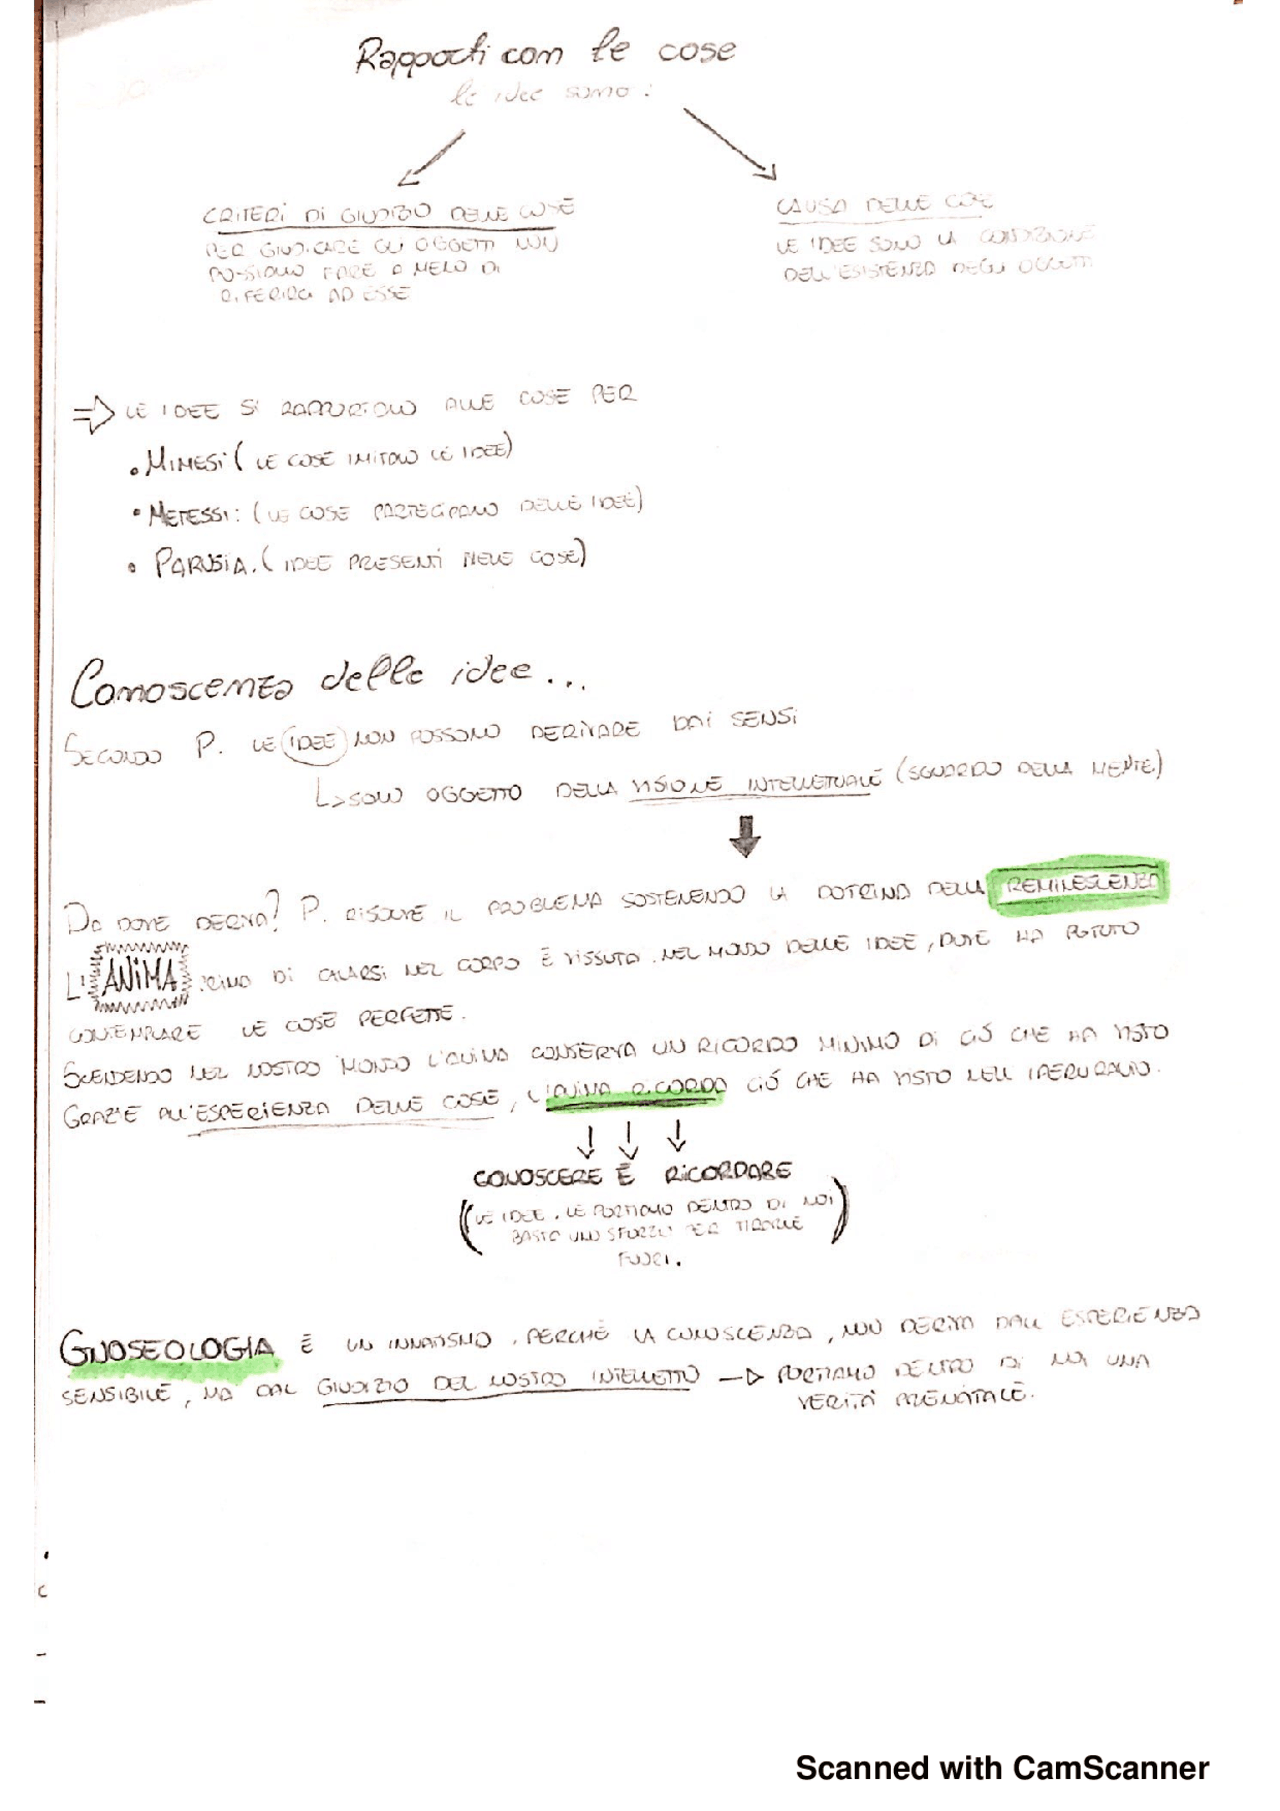 Rapporti con le cose
le idee sono:
CRITERI DI GIUDIZO DELLE COSE
PER GIUDICARE GLI OGGETTI NON
POSSIAMO FARE A MENO DI
RIFERIRCI AD ESSE
CAUSA DELLE COSE
LE IDEE SONO LA CONDIZIONE
DELL'ESISTENZA DEGLI OGGETTI
⇒ LE IDEE SI RAPPORTANO ALLE COSE PER
• MIMESI (LE COSE IMITANO LE IDEE)
• METESSI: (LE COSE PARTECIPANO DELLE IDEE)
• PARUSIA. (IDEE PRESENTI NELLE COSE)
Conoscenza delle idee...
SECONDO P. LE IDEE NON POSSONO DERIVARE DAI SENSI
↳ SOLO OGGETTO DELLA VISIONE INTELLETTUALE (SGUARDO DELLA MENTE)
DA DOVE DERIVA? P. RISOLVE IL PROBLEMA SOSTENENDO LA DOTRINA DELLA REMINESCENZA
L'ANIMA PRIMA DI CALARSI NEL CORPO È VISSUTA NEL MONDO DELLE IDEE, DOVE HA POTUTO
CONTEMPLARE LE COSE PERFETTE.
SCENDENDO NEL NOSTRO MONDO L'ANIMA CONSERVA UN RICORDO MINIMO DI CIÓ CHE HA VISTO
GRAZIE ALL'ESPERIENZA DELLE COSE, L'ANIMA RICORDA CIÓ CHE HA VISTO NELL'IPERURANIO.
CONOSCERE È RICORDARE
(LE IDEE, LE PORTIAMO DENTRO DI NOI
BASTA UNO SFORZO PER TIRARLE
FUORI.)
GNOSEOLOGIA È UN INNATISMO, PERCHÈ LA CONOSCENZA, NON DERIVA DALL'ESPERIENZA
SENSIBILE, MA DAL GIUDIZIO DEL NOSTRO INTELLETTO → PORTIAMO DENTRO DI NOI UNA
VERITÀ PRENATALE.
Scanned with CamScanner